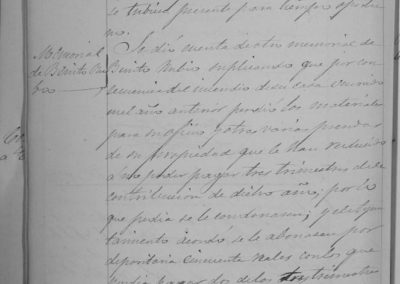 se tubiese presente para tiempo oportu
no.
Memorial
de Benito Ru
bio
Se dió cuenta de otro memorial de
Benito Rubio suplicando que por con
secuencia del incendio de su casa ocurrido
en el año anterior perdió los materiales
para su oficio y otras varias prendas
de su propiedad que le han reducido
a no poder pagar tres trimestres de la
contribucion de dicho año; por lo
que pedia se le condonasen; y el Ayun
tamiento acordó se le abonasen por
depositaria cincuenta reales con los que
podia pagar dos de los tres trimestres